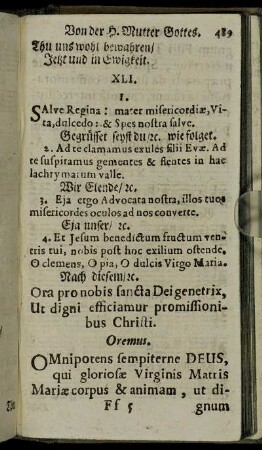 Von der H. Mutter Gottes. 489
Thu uns wohl bewahren/
Jetzt und in Ewigkeit.
XLI.
I.
SAlve Regina: mater misericordiæ, Vi-
ta, dulcedo: & Spes nostra salve.
Gegrüsset seyst du/ ꝛc. wie folget.
2. Ad te clamamus exules filii Evæ. Ad
te suspitamus gementes & flentes in hac
lachrymarum valle.
Wir Elende/ ꝛc.
3. Eja ergo Advocata nostra, illos tuos
misericordes oculos ad nos converte.
Eja unser/ ꝛc.
4. Et Jesum benedictum fructum ven-
tris tui, nobis post hoc exilium ostende.
O clemens, O pia, O dulcis Virgo Maria.
Nach diesem/ ꝛc.
Ora pro nobis sancta Dei genetrix,
Ut digni efficiamur promissioni-
bus Christi.
Oremus.
OMnipotens sempiterne DEUS,
qui gloriosæ Virginis Matris
Mariæ corpus & animam, ut di-
Ff 5 gnum